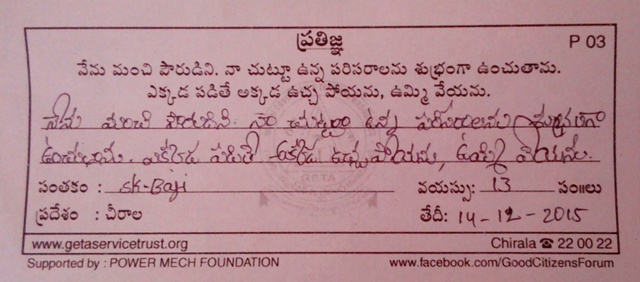 ప్రతిజ్ఞ P 03
నేను మంచి పౌరుడిని. నా చుట్టూ ఉన్న పరిసరాలను శుభ్రంగా ఉంచుతాను.
ఎక్కడ పడితే అక్కడ ఉచ్చ పోయను, ఉమ్మి వేయను.
నేను మంచి పౌరుడిని. నా చుట్టూ ఉన్న పరిసరాలను శుభ్రంగా
ఉంచుతాను. ఎక్కడ పడితే అక్కడ ఉచ్చ పోయను, ఉమ్మి వేయను.
సంతకం : SK-Baji వయస్సు: 13 సం॥లు
ప్రదేశం : చీరాల తేదీ: 14-12-2015
www.getaservicetrust.org Chirala ☎ 22 00 22
Supported by : POWER MECH FOUNDATION www.facebook.com/GoodCitizensForum